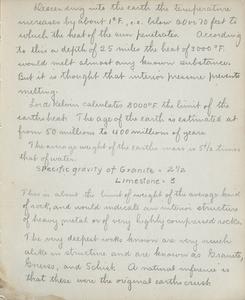 Descending into the earth the temperature
increases by about 1°F, i.e. below 20 or 70 feet to
which the heat of the sun penetrates. According
to this a depth of 25 miles the heat of 3000°F.
would melt almost any known substance.
But it is thought that interior pressure prevents
melting.
Lord Kelvin calculates 8000°F the limit of the
earths heat. The age of the earth is estimated at
from 50 millions to 400 millions of years
The average weight of the earths mass is 5 1/2 times
that of water.
Specific gravity of Granite = 2 1/2
Limestone = 3
This is about the limit of weight of the average kind
of rock, and would indicate an interior structure
of heavy metal or of very highly compressed rocks.
The very deepest rocks known are very much
alike in structure and are known as Granite,
Gneiss, and Schist. A natural inference is
that these were the original earths crust